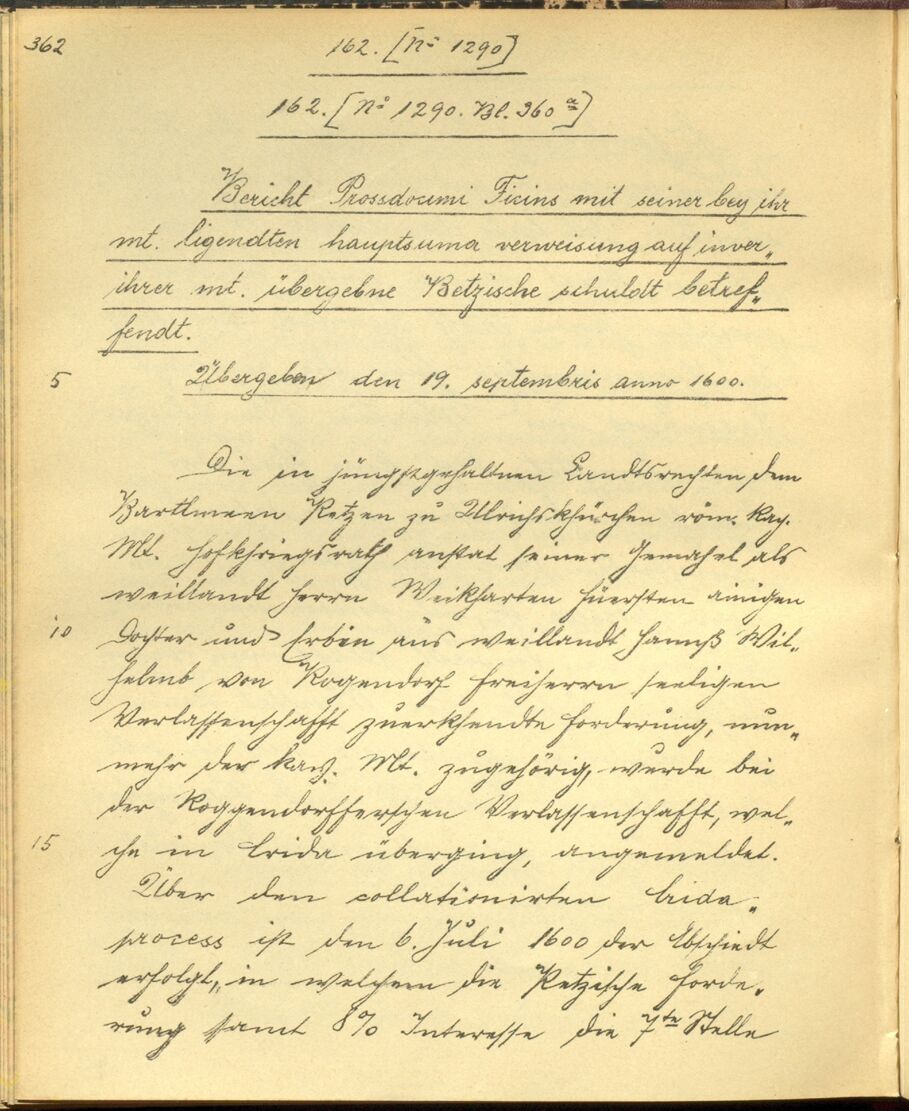 362
162. [No 1290]
162. [No 1290. Bl. 360 a]
Bericht Prossdocumi Ficins mit seiner bey ihr
mt. ligendten hauptsuma verweisung auf inver„
ihrer mt. übergebne Betzische schuldt betref„
fendt.
5 Übergeben den 19. septembris anno 1600.
Die in jüngstgehaltnen Landtsrechten, dem
Bartlmeen Petzen zu Ulrichskhürchen röm. kay.
Mt. Hofkhriegsrath anstat seiner Gemahel als
weillandt Herrn Weikharten Füersten ainigen
10 Dochter und Erbin aus weillandt Hannß Wil„
helmb von Rogendorf Freiherrn seeligen
Verlassenschafft zuerkhendte Forderung, nun„
mehr der kay. Mt. zugehörig, wurde bei
der Roggendorfferschen Verlassenschafft, wel„
15 che in Crida überging, angemeldet.
Über den collationirten Crida„
process ist den 6. Juli 1600 der Abschiedt
erfolgt, in welchem die Petzische Forde„
rung samt 8% Interesse die 7te Stelle